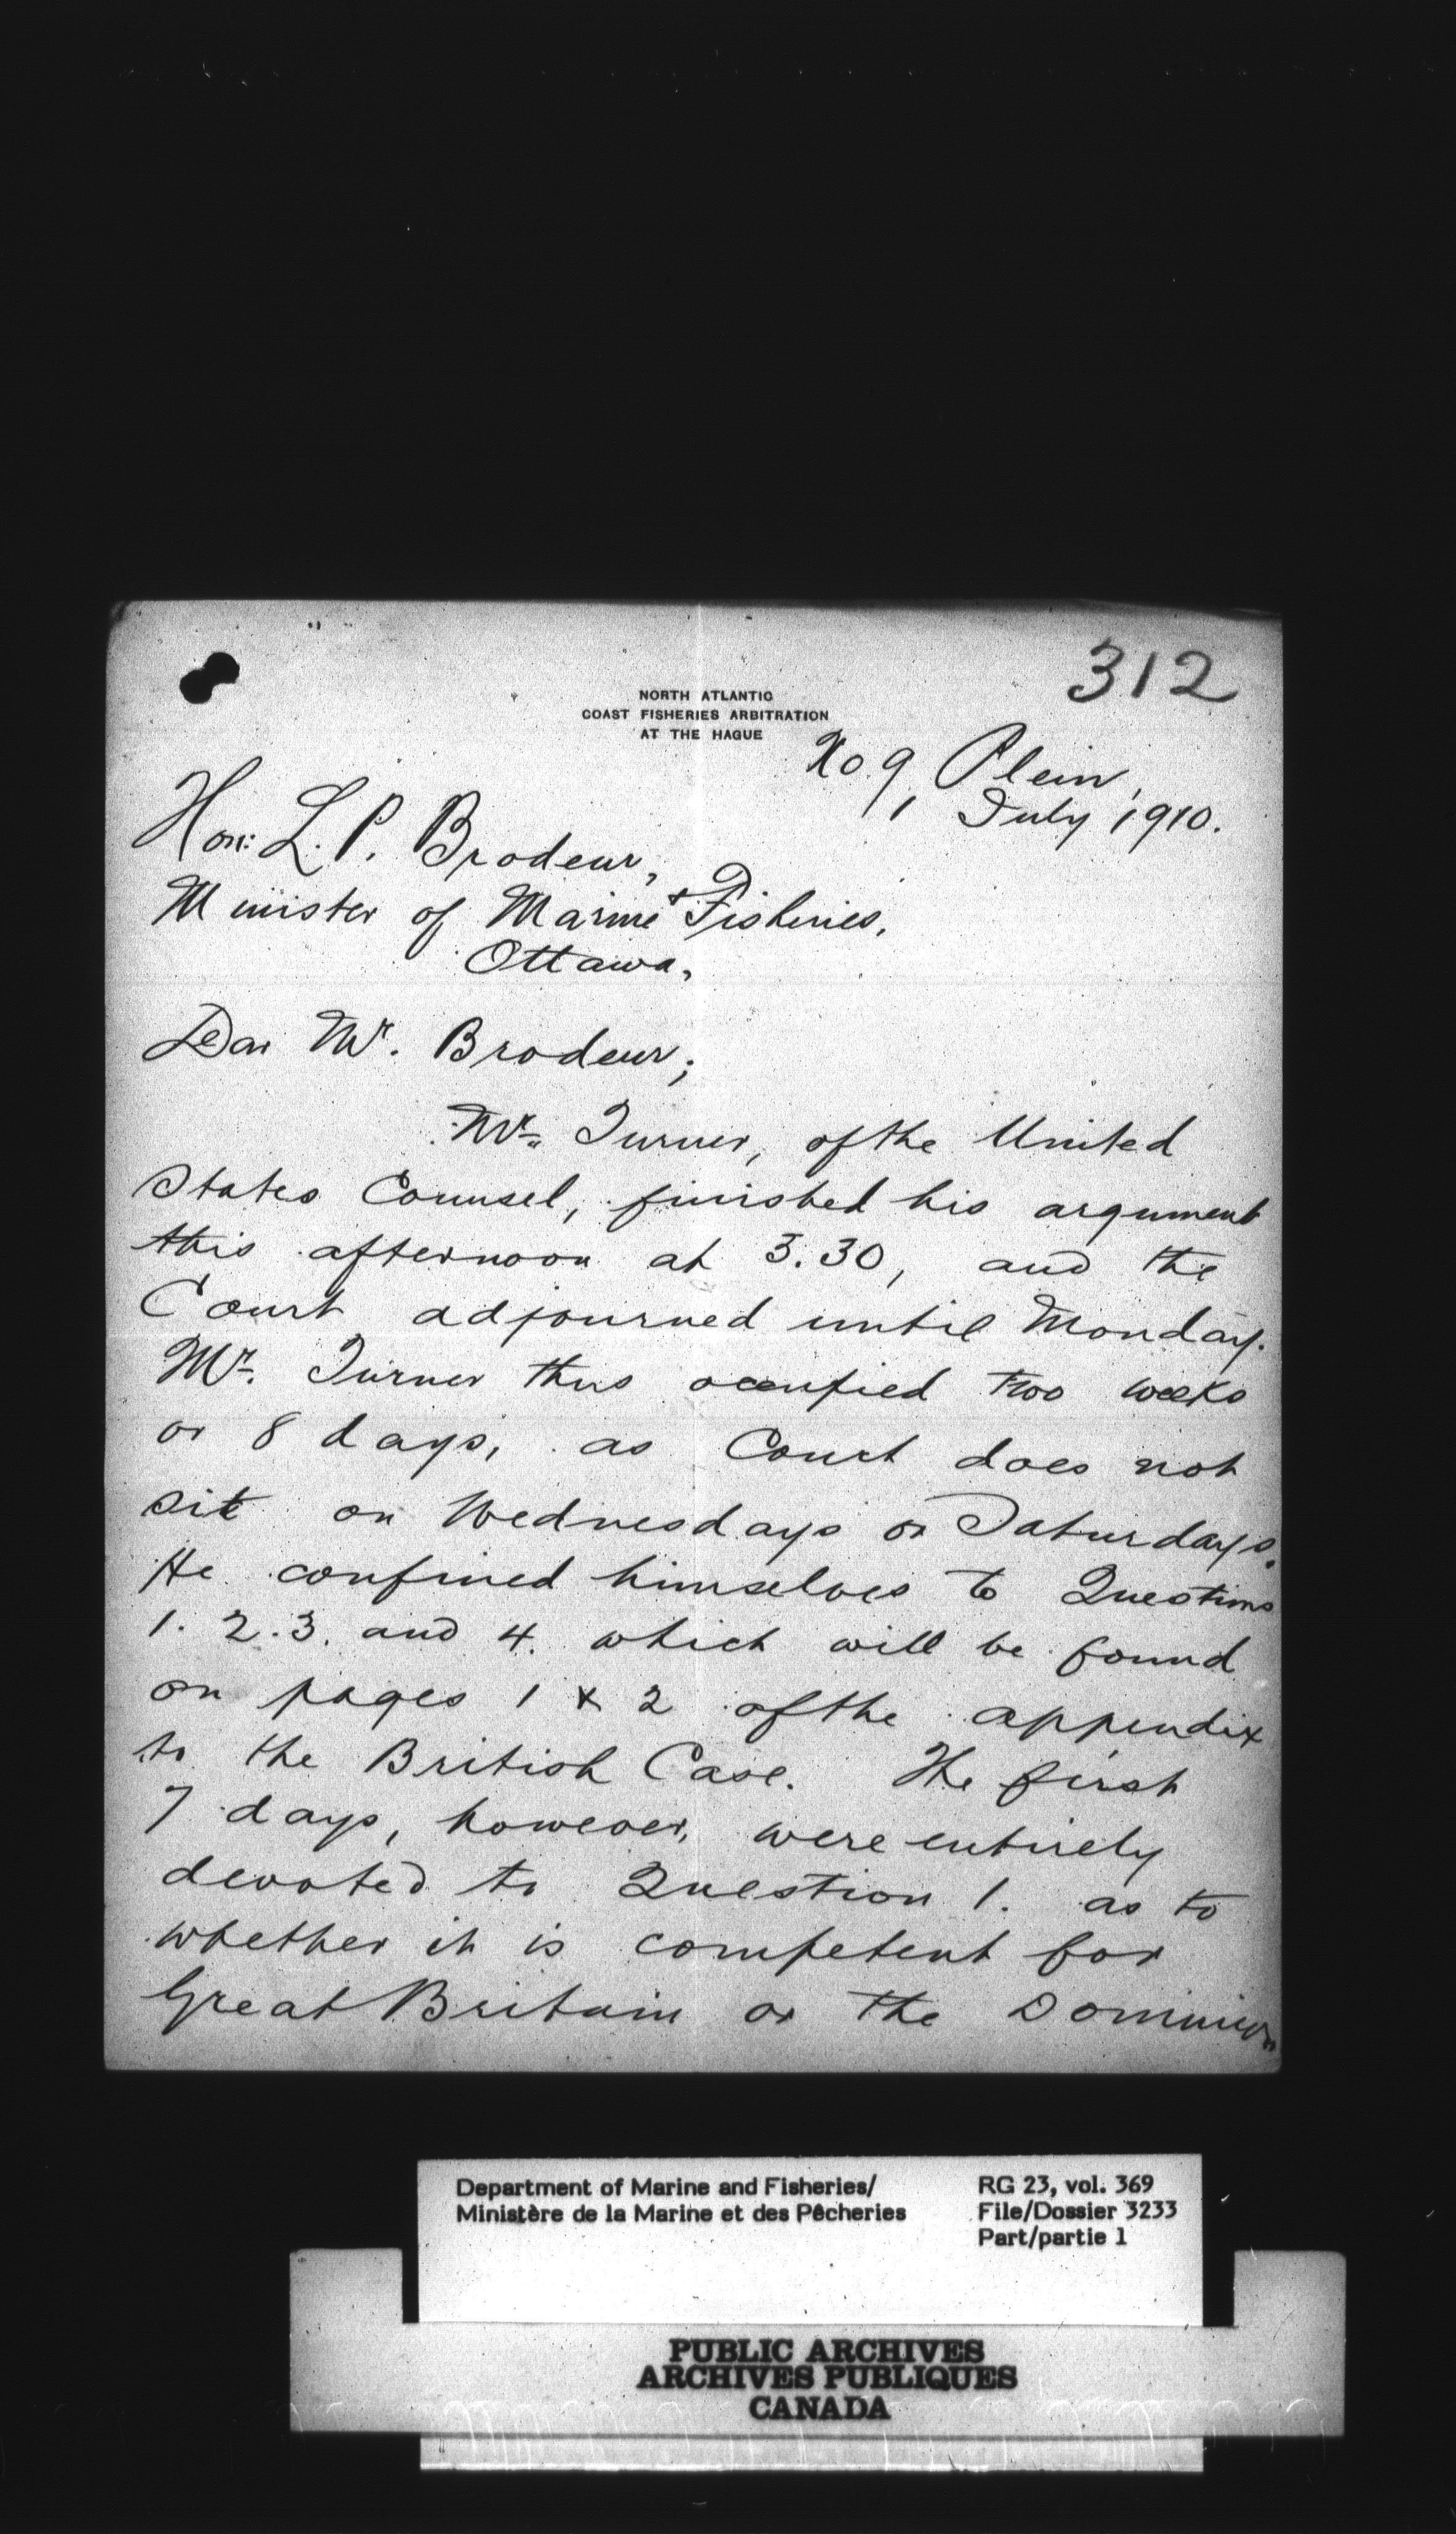 312
NORTH ATLANTIC
COAST FISHERIES ARBITRATION
AT THE HAGUE
No 9, Plein,
1 July 1910.
Hon: L. P. Brodeur,
Minister of Marine & Fisheries,
Ottawa,
Dear Mr. Brodeur;
Mr. Turner, of the United
States Counsel, finished his argument
this afternoon at 3.30, and the
Court adjourned until Monday.
Mr. Turner thus occupied two weeks
or 8 days, as Court does not
sit on Wednesdays or Saturdays.
He confined himselves to Questions
1. 2. 3. and 4. which will be found
on pages 1 & 2 of the appendix
to the British Case. The first
7 days, however, were entirely
devoted to Question 1. as to
whether it is competent for
Great Britain or the Dominion
Department of Marine and Fisheries/
Ministère de la Marine et des Pêcheries
RG 23, vol. 369
File/Dossier 3233
Part/partie 1
PUBLIC ARCHIVES
ARCHIVES PUBLIQUES
CANADA